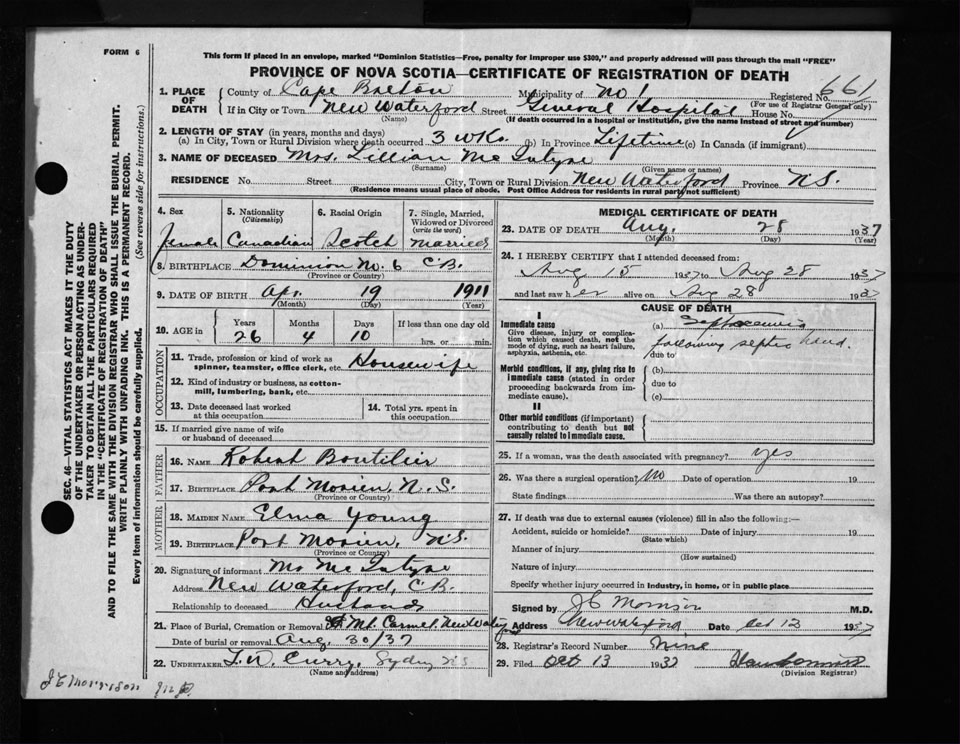 FORM 6
This form if placed in an envelope, marked "Dominion Statistics—Free, penalty for improper use $300," and properly addressed will pass through the mail "FREE"
PROVINCE OF NOVA SCOTIA—CERTIFICATE OF REGISTRATION OF DEATH
1. PLACE OF DEATH County of Cape Breton Municipality of No 1 Registered No. 661
(For use of Registrar General only)
If in City or Town New Waterford Street General Hospital House No.
(Name) (If death occurred in a hospital or institution, give the name instead of street and number)
2. LENGTH OF STAY (in years, months and days)
(a) In City, Town or Rural Division where death occurred 3 wks (b) In Province Lifetime (c) In Canada (if immigrant)
3. NAME OF DECEASED Mrs. Lillian Mc Intyre
(Surname) (Given name or names)
RESIDENCE No. Street City, Town or Rural Division New Waterford Province N.S.
(Residence means usual place of abode. Post Office Address for residents in rural parts not sufficient)
SEC. 46—VITAL STATISTICS ACT MAKES IT THE DUTY
OF THE UNDERTAKER OR PERSON ACTING AS UNDER-
TAKER TO OBTAIN ALL THE PARTICULARS REQUIRED
IN THE "CERTIFICATE OF REGISTRATION OF DEATH"
AND TO FILE THE SAME WITH THE DIVISION REGISTRAR WHO SHALL ISSUE THE BURIAL PERMIT.
WRITE PLAINLY WITH UNFADING INK. THIS IS A PERMANENT RECORD.
Every item of information should be carefully supplied. (See reverse side for instructions.)
4. Sex 5. Nationality (Citizenship) 6. Racial Origin 7. Single, Married, Widowed or Divorced (write the word)
female Canadian Scotch married
8. BIRTHPLACE Dominion No. 6 C.B.
(Province or Country)
9. DATE OF BIRTH Apr. 19 1911
(Month) (Day) (Year)
10. AGE in Years Months Days If less than one day old
26 4 10 hrs. or min.
OCCUPATION
11. Trade, profession or kind of work as spinner, teamster, office clerk, etc. Housewife
12. Kind of industry or business, as cotton-mill, lumbering, bank, etc.
13. Date deceased last worked at this occupation
14. Total yrs. spent in this occupation
15. If married give name of wife or husband of deceased
FATHER
16. NAME Robert Boutilier
17. BIRTHPLACE Port Morien, N.S.
(Province or Country)
MOTHER
18. MAIDEN NAME Elma Young
19. BIRTHPLACE Port Morien, N.S.
(Province or Country)
20. Signature of informant Mr Mc Intyre
Address New Waterford, C.B.
Relationship to deceased Husband
21. Place of Burial, Cremation or Removal Mt. Carmel, New Waterford
Date of burial or removal Aug. 30/37
22. UNDERTAKER Curry, Sydney N.S
(Name and address)
MEDICAL CERTIFICATE OF DEATH
23. DATE OF DEATH Aug. 28 1937
(Month) (Day) (Year)
24. I HEREBY CERTIFY that I attended deceased from:
Aug 15 1937 to Aug 28 1937
and last saw her alive on Aug 28 1937
CAUSE OF DEATH
I
Immediate cause (a) Septicaemia
Give disease, injury or complication which caused death, not the mode of dying, such as heart failure, asphyxia, asthenia, etc. following septic hand.
due to
Morbid conditions, if any, giving rise to immediate cause (stated in order proceeding backwards from immediate cause). (b)
due to
(c)
II
Other morbid conditions (if important) contributing to death but not causally related to immediate cause.
25. If a woman, was the death associated with pregnancy? yes
26. Was there a surgical operation? No Date of operation 19
State findings Was there an autopsy?
27. If death was due to external causes (violence) fill in also the following:—
Accident, suicide or homicide? Date of injury 19
(State which)
Manner of injury
(How sustained)
Nature of injury
Specify whether injury occurred in industry, in home, or in public place
Signed by J C Morrison M.D.
Address New Waterford Date Oct 13 1937
28. Registrar's Record Number Nine
29. Filed Oct 13 1937
(Division Registrar)
J C Morrison